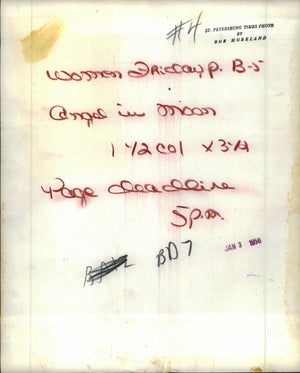 #4
ST. PETERSBURG TIMES PHOTO
BY
BOB MORELAND
Women Friday p. B-5
Angel in Moon
1 1/2 col x
Page deadline
5 p.m.
BD7
JAN 3 1958